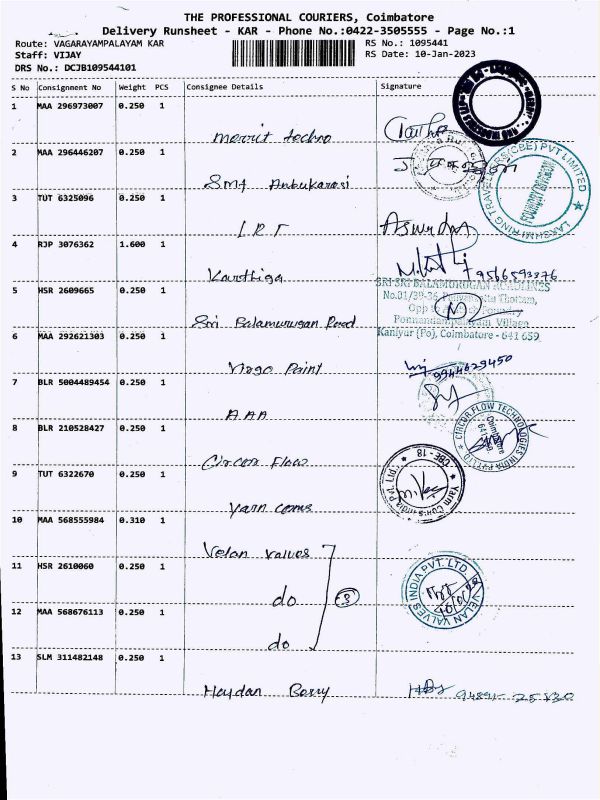 THE PROFESSIONAL COURIERS, Coimbatore
Delivery Runsheet - KAR - Phone No.:0422-3505555 - Page No.:1
Route: VAGARAYAMPALAYAM KAR
RS No.: 1095441
Staff: VIJAY
RS Date: 10-Jan-2023
DRS No.: DCJB109544101
S No Consignment No Weight PCS Consignee Details Signature
1 MAA 296973007 0.250 1
Merrit techno
2 MAA 296446207 0.250 1
Smt Anbukarasi
3 TUT 6325096 0.250 1
LAKSHMI RING TRAVELLERS(CBE) PVT LIMITED
FOUNDRY DIVISION
4 RJP 3076362 1.600 1
Karthiga
9566593376
5 HSR 2609665 0.250 1
SRI SRI BALAMURUGAN ROADLINES
No.01/39-36, Thottam,
Opp to
Ponnandampalayam Village
Kaniyur (Po), Coimbatore - 641 659
Sri Balamurugan Road
6 MAA 292621303 0.250 1
Paint
9944629450
7 BLR 5004489454 0.250 1
AAA
8 BLR 210528427 0.250 1
CIRCOR FLOW TECHNOLOGIES INDIA PVT LTD
Coimbatore
Circor Flow
9 TUT 6322670 0.250 1
CBE - 18
Yarn cones
10 MAA 568555984 0.310 1
Velan valves
11 HSR 2610060 0.250 1
VELAN VALVES INDIA PVT. LTD.
do
3
12 MAA 568676113 0.250 1
do
13 SLM 311482148 0.250 1